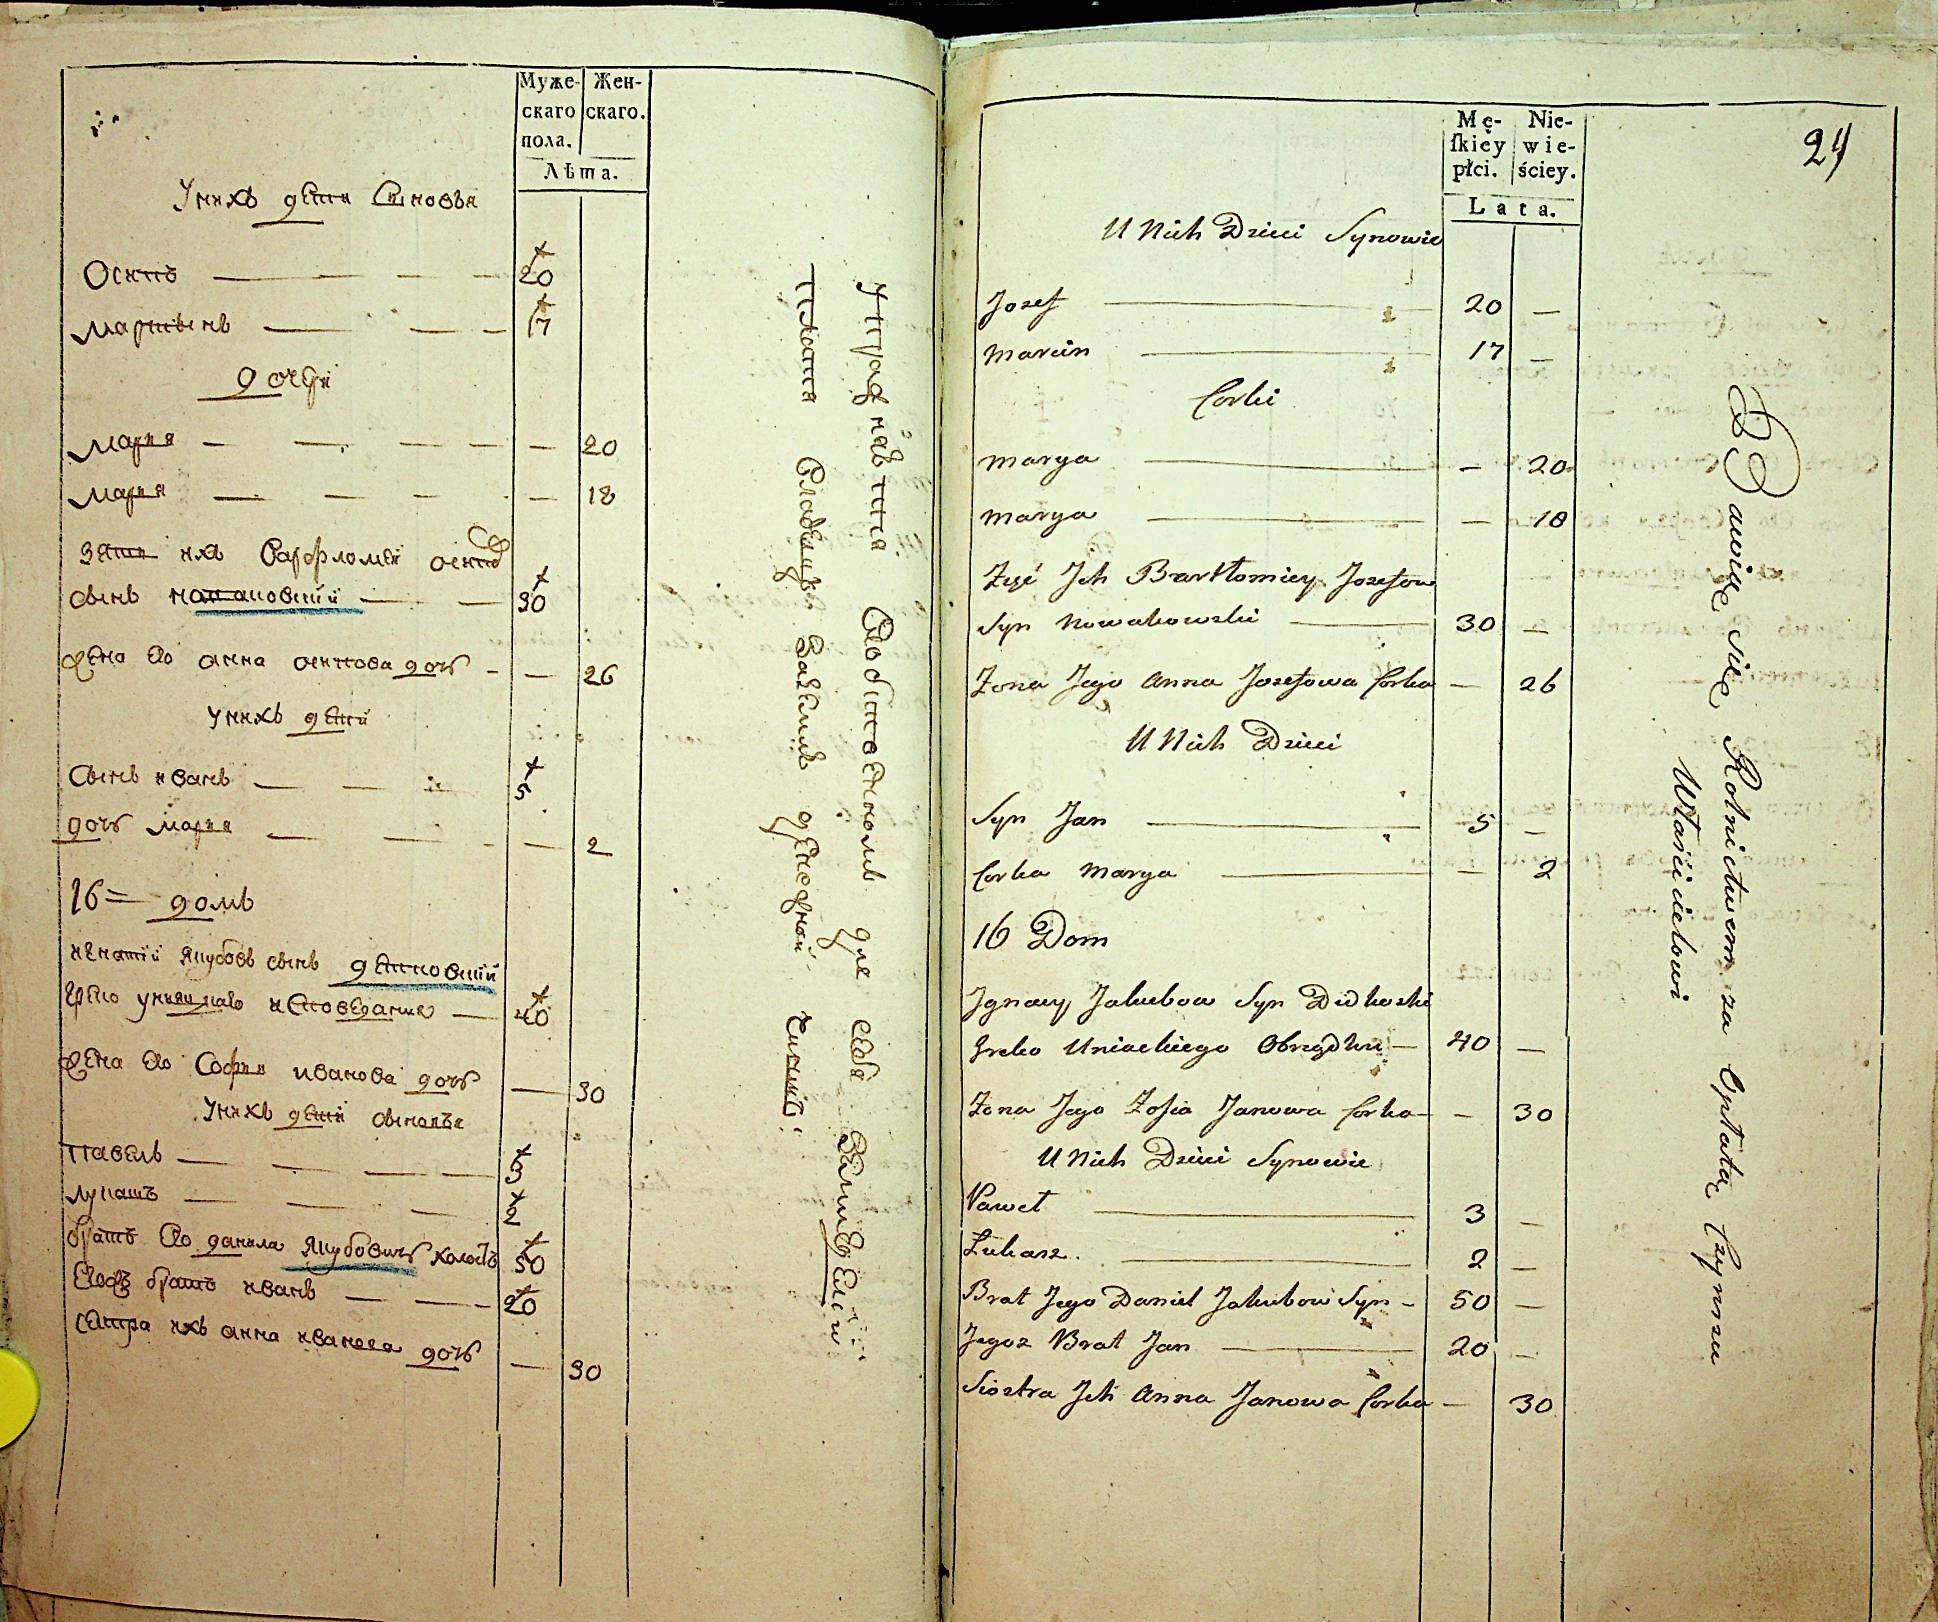 Муже-
скаго
пола.
Жен-
скаго.
Лѣта.
Унихъ дети Синовья
Осипъ — 20
Мартынъ — 17
дочери
Мария — — 20
Мария — — 18
Зять ихъ Варфломей осипо
сынъ — 30
жена его анна осипова дочь — — 26
Унихъ дети
Сынъ иванъ — 5
дочь Мария — — 2
16 = домъ
игнатій якубовъ сынъ
греко униацкаго исповедания — 40
жена его София иванова дочь — 30
Унихъ дети сыновья
Павелъ — 3
Лукашъ — 2
братъ его данила якубовичъ холостъ 50
Егожъ братъ иванъ — 20
сестра ихъ анна иванова дочь — 30
для себя
24
Mę-
ſkiey
płci.
Nie-
wie-
ściey.
Lata.
U Nich Dzieci Synowie
Jozef — 20 —
Marcin — 17 —
Corki
Marya — — 20
Marya — — 18
Zęć Jch Bartłomiey Jozefow
Syn Nowakowski — 30 —
Żona Jego Anna Jozefowa Corka — 26
U Nich Dzieci
Syn Jan — 5 —
Corka Marya — — 2
16 Dom
Jgnacy Jakubow Syn Didkoski
Greko Uniackiego Obrządku — 40 —
Żona Jego Zofia Janowa Corka — — 30
U Nich Dzieci Synowie
Paweł — 3 —
Łukasz. — 2 —
Brat Jego Daniel Jakubow Syn — 50 —
Jegoz Brat Jan — 20 —
Siostra Jch Anna Janowa Corka — 30
Bawiące się Rolnictwem za Opłatą Czynszu
Właścicielowi